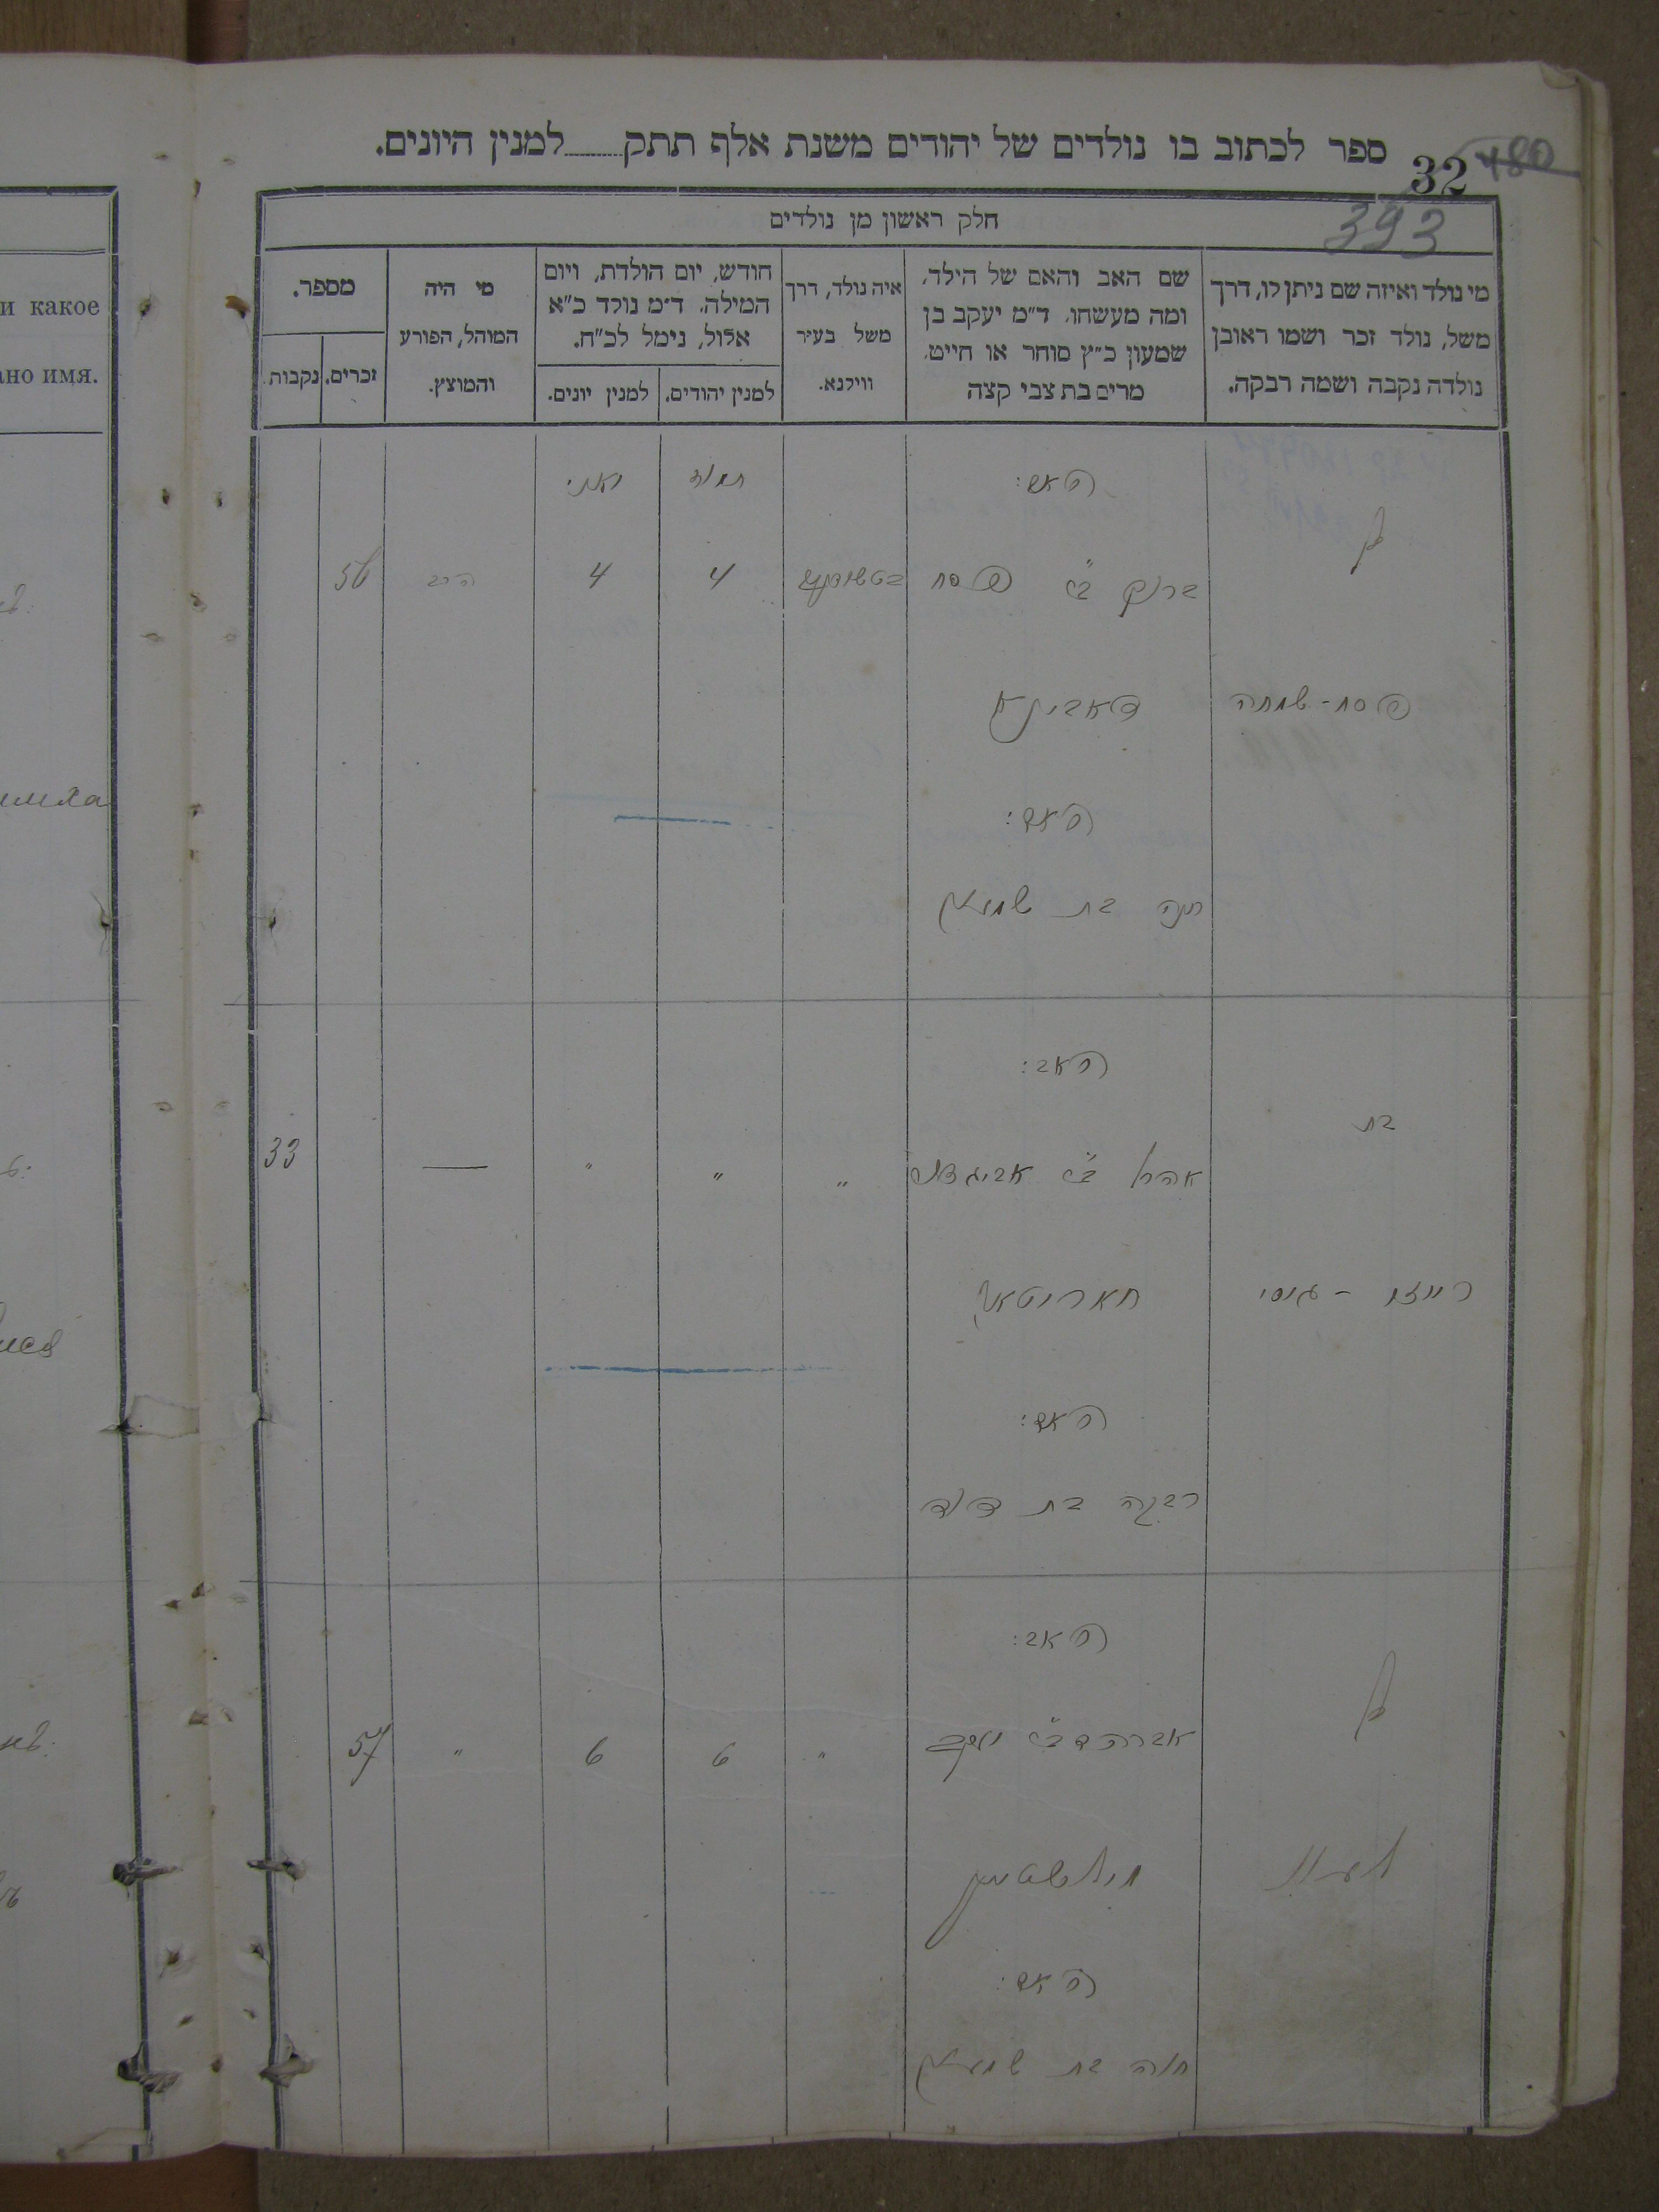 ספר לכתוב בו נולדים של יהודים משנת אלף תתק......למנין היונים.
32
480
393
חלק ראשון מן נולדים
מי נולד ואיזה שם ניתן לו, דרך
משל, נולד זכר ושמו ראובן
נולדה נקבה ושמה רבקה.
שם האב והאם של הילד,
ומה מעשהו, ד״מ יעקב בן
שמעון כ״ץ סוחר או חייט,
מרים בת צבי קצה
איה נולד, דרך
משל בעיר
ווילנא.
חודש, יום הולדת, ויום
המילה, ד״מ נולד כ״א
אלול, נימל לכ״ח.
למנין יהודים.
למנין יונים.
מי היה
המוהל, הפורע
והמוצץ.
מספר.
זכרים.
נקבות
и какое
ано имя.
האב:
תמוז
בן
ברוך ב״ר פסח
4
4
הרב
56
פסח-שמחה
האם:
חנה בת שמואל
האב:
בת
אהרן ב״ר אביגדור
"
"
"
—
33
האם:
רבקה בת דוד
האב:
בן
אברהם ב״ר יעקב
"
6
6
"
57
האם:
חוה בת שמואל